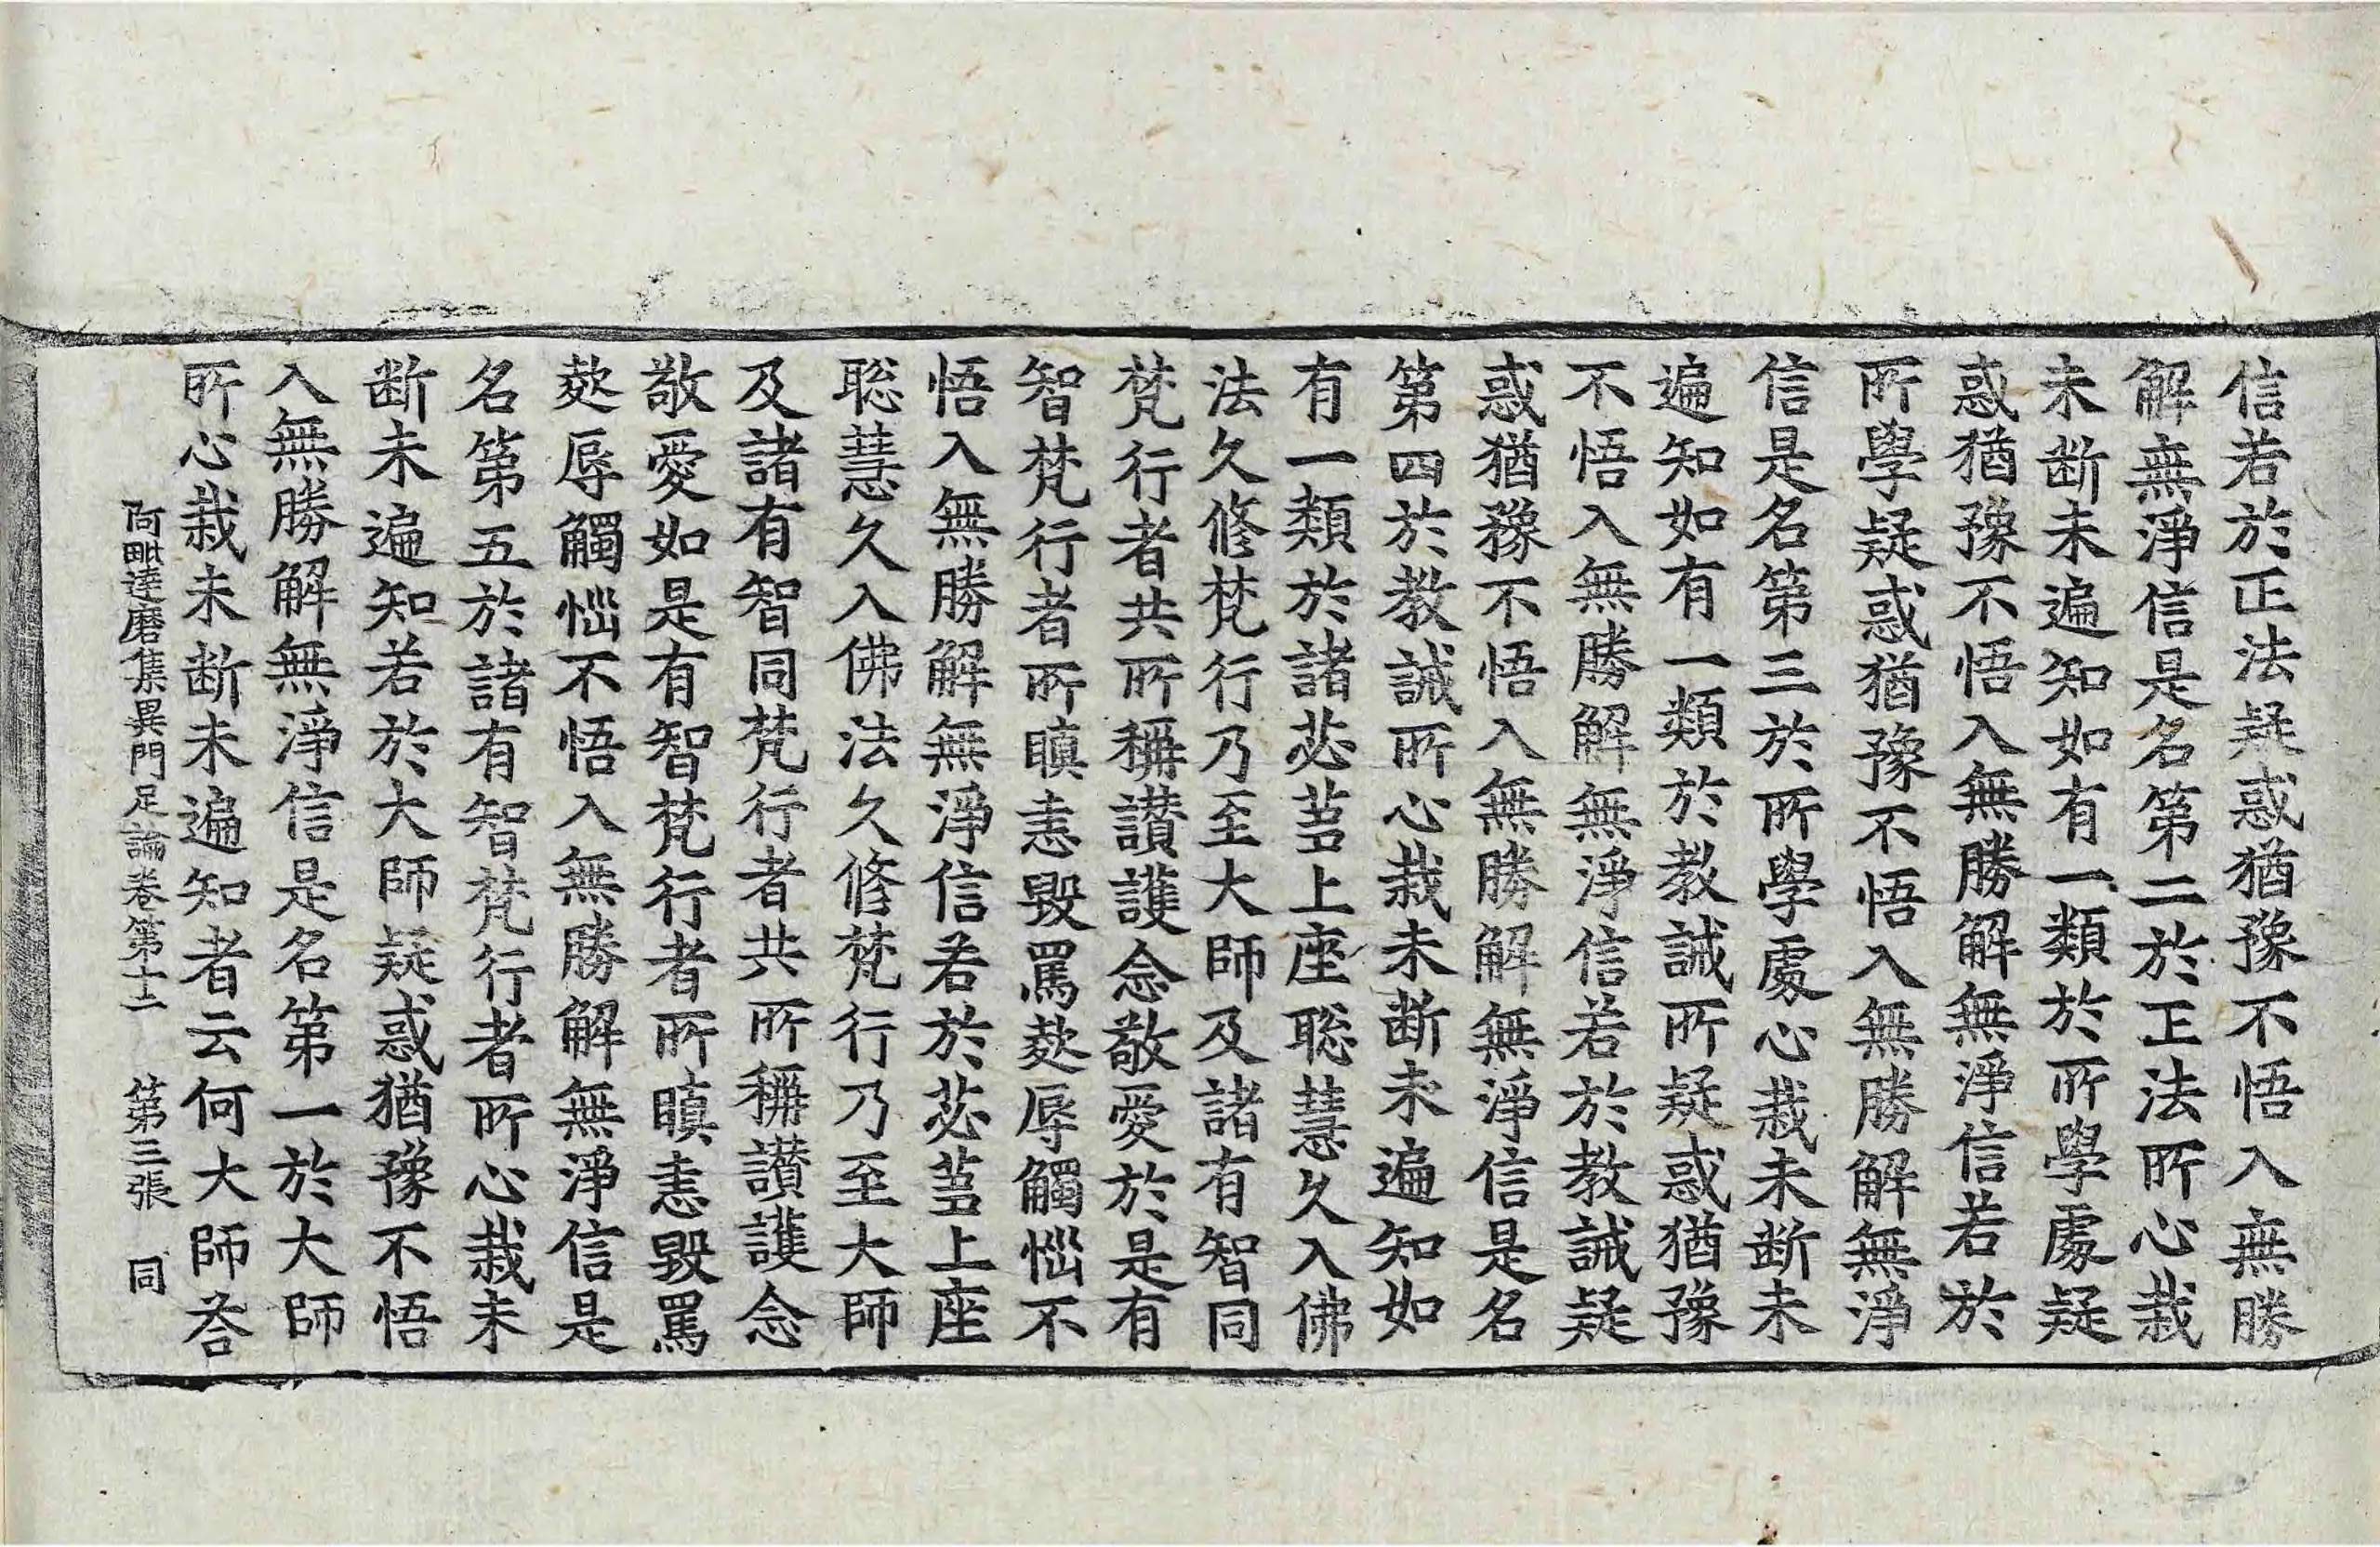 信若於正法疑惑猶豫不悟入無勝
解無淨信是名第二於正法所心栽
未断未遍知如有一類於所學處疑
惑猶豫不悟入無勝解無淨信若於
所學疑惑猶豫不悟入無勝解無淨
信是名第三於所學處心栽未断未
遍知如有一類於教誡所疑惑猶豫
不悟入無勝解無淨信若於教誡疑
惑猶豫不悟入無勝解無淨信是名
第四於教誡所心栽未断未遍知如
有一類於諸苾芻上座聡慧久入佛
法久修梵行乃至大師及諸有智同
梵行者共所稱讃護念敬愛於是有
智梵行者所瞋恚毀罵欸辱觸惱不
悟入無勝解無淨信若於苾芻上座
聡慧久入佛法久修梵行乃至大師
及諸有智同梵行者共所稱讃護念
敬愛如是有智梵行者所瞋恚毀罵
欸辱觸惱不悟入無勝解無淨信是
名第五於諸有智梵行者所心栽未
断未遍知若於大師疑惑猶豫不悟
入無勝解無淨信是名第一於大師
所心栽未断未遍知者云何大師荅
阿毗達磨集異門足論卷第十二 第三張 同